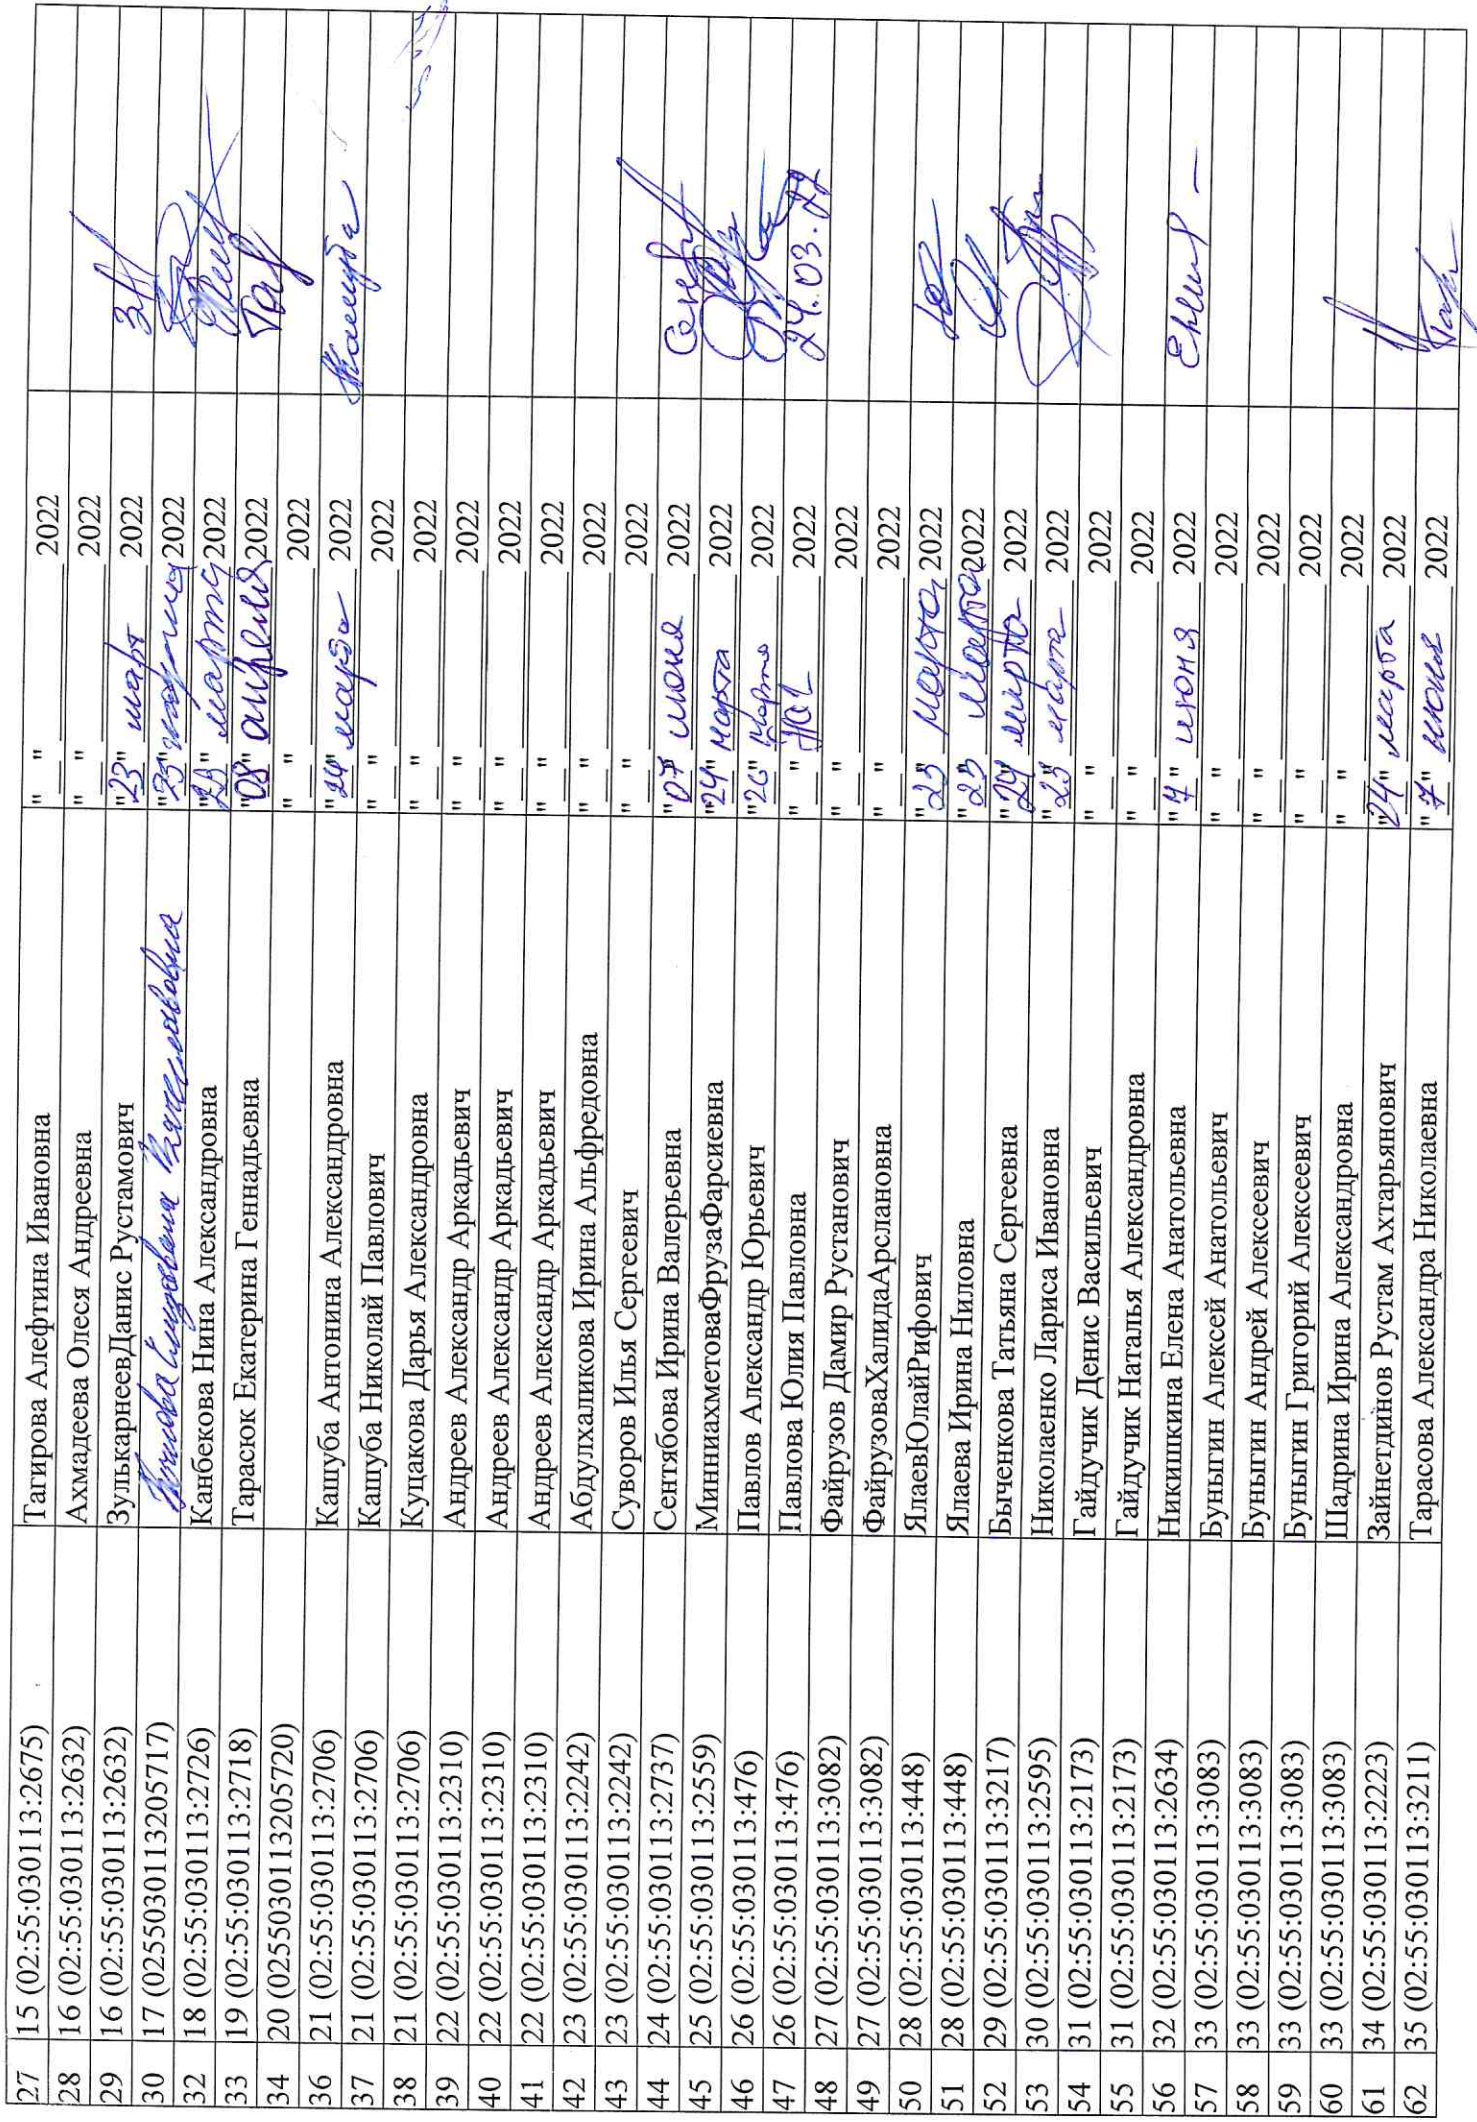 27 15 (02:55:030113:2675) Тагирова Алефтина Ивановна "__" ______ 2022
28 16 (02:55:030113:2632) Ахмадеева Олеся Андреевна "__" ______ 2022
29 16 (02:55:030113:2632) ЗулькарнеевДанис Рустамович "23" март 2022
30 17 (0255030113205717) "23" 2022
32 18 (02:55:030113:2726) Канбекова Нина Александровна "23" марта 2022
33 19 (02:55:030113:2718) Тарасюк Екатерина Геннадьевна "08" апреля 2022
34 20 (0255030113205720) "__" ______ 2022
36 21 (02:55:030113:2706) Кашуба Антонина Александровна "24" марта 2022 Кашуба
37 21 (02:55:030113:2706) Кашуба Николай Павлович "__" ______ 2022
38 21 (02:55:030113:2706) Куцакова Дарья Александровна "__" ______ 2022
39 22 (02:55:030113:2310) Андреев Александр Аркадьевич "__" ______ 2022
40 22 (02:55:030113:2310) Андреев Александр Аркадьевич "__" ______ 2022
41 22 (02:55:030113:2310) Андреев Александр Аркадьевич "__" ______ 2022
42 23 (02:55:030113:2242) Абдулхаликова Ирина Альфредовна "__" ______ 2022
43 23 (02:55:030113:2242) Суворов Илья Сергеевич "__" ______ 2022
44 24 (02:55:030113:2737) Сентябова Ирина Валерьевна "07" июня 2022
45 25 (02:55:030113:2559) МинниахметоваФрузаФарсиевна "24" марта 2022
46 26 (02:55:030113:476) Павлов Александр Юрьевич "26" марта 2022
47 26 (02:55:030113:476) Павлова Юлия Павловна "__" 2022 24.03.22
48 27 (02:55:030113:3082) Файрузов Дамир Рустанович "__" ______ 2022
49 27 (02:55:030113:3082) ФайрузоваХалидаАрслановна "__" ______ 2022
50 28 (02:55:030113:448) ЯлаевЮлайРифович "23" марта 2022
51 28 (02:55:030113:448) Ялаева Ирина Ниловна "23" марта 2022
52 29 (02:55:030113:3217) Быченкова Татьяна Сергеевна "24" марта 2022
53 30 (02:55:030113:2595) Николаенко Лариса Ивановна "23" марта 2022
54 31 (02:55:030113:2173) Гайдучик Денис Васильевич "__" ______ 2022
55 31 (02:55:030113:2173) Гайдучик Наталья Александровна "__" ______ 2022
56 32 (02:55:030113:2634) Никишкина Елена Анатольевна "7" июня 2022
57 33 (02:55:030113:3083) Буныгин Алексей Анатольевич "__" ______ 2022
58 33 (02:55:030113:3083) Буныгин Андрей Алексеевич "__" ______ 2022
59 33 (02:55:030113:3083) Буныгин Григорий Алексеевич "__" ______ 2022
60 33 (02:55:030113:3083) Шадрина Ирина Александровна "__" ______ 2022
61 34 (02:55:030113:2223) Зайнетдинов Рустам Ахтарьянович "24" марта 2022
62 35 (02:55:030113:3211) Тарасова Александра Николаевна "7" июня 2022